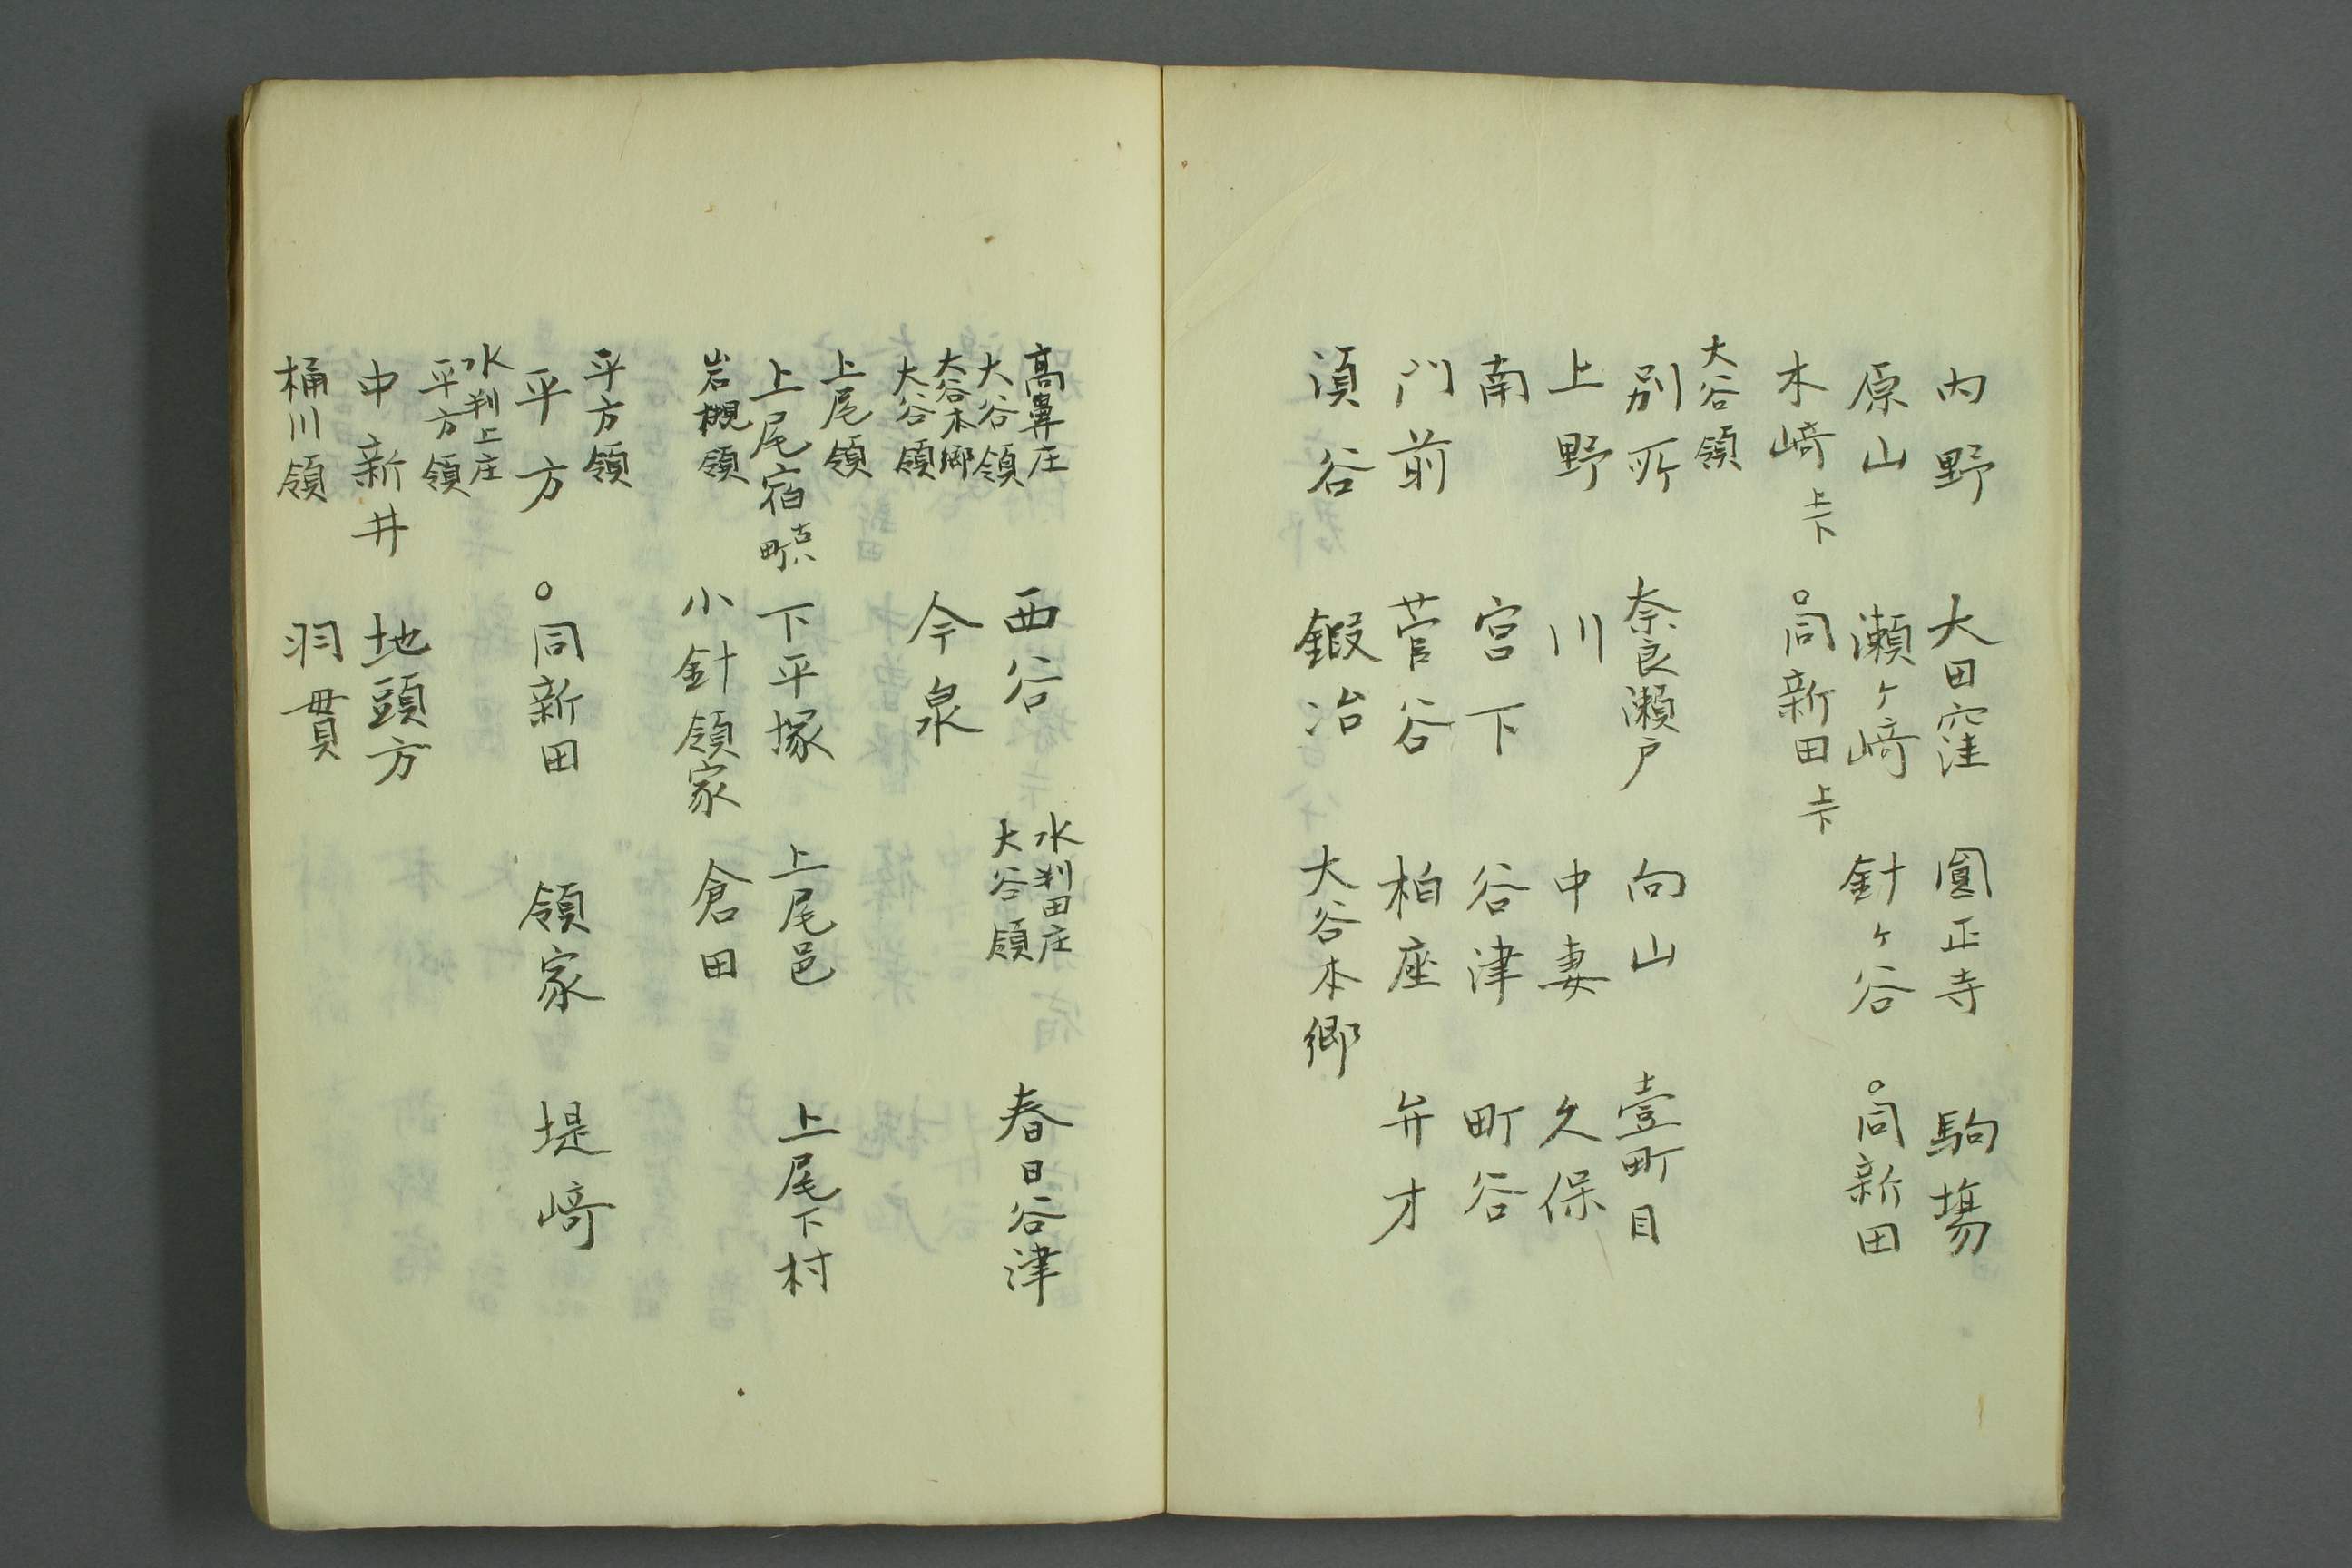 内野 大田窪 圓正寺 駒場
原山 瀬ヶ﨑 針ヶ谷 ○同新田
木﨑上下 ○同新田上下
大谷領
別所 奈良瀬戸 向山 壹町目
上野 川 中妻 久保
南 宮下 谷津 町谷
門前 菅谷 柏座 弁才
須谷 鍜冶 大谷本郷
高鼻庄
大谷領
西谷
水判田庄
大谷領
春日谷津
大谷本郷
大谷領
今泉
上尾領
上尾宿 下平塚 上尾邑 上尾下村
岩槻領 小針領家 倉田
平方領
平方 ○同新田 領家 堤﨑
水判上庄
平方領
中新井 地頭方
桶川領 羽貫